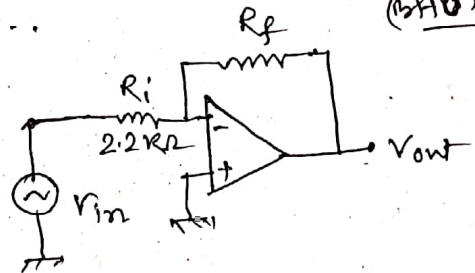 (BHU
Rf
Ri
2.2 KΩ
-
+
Vout
Vin